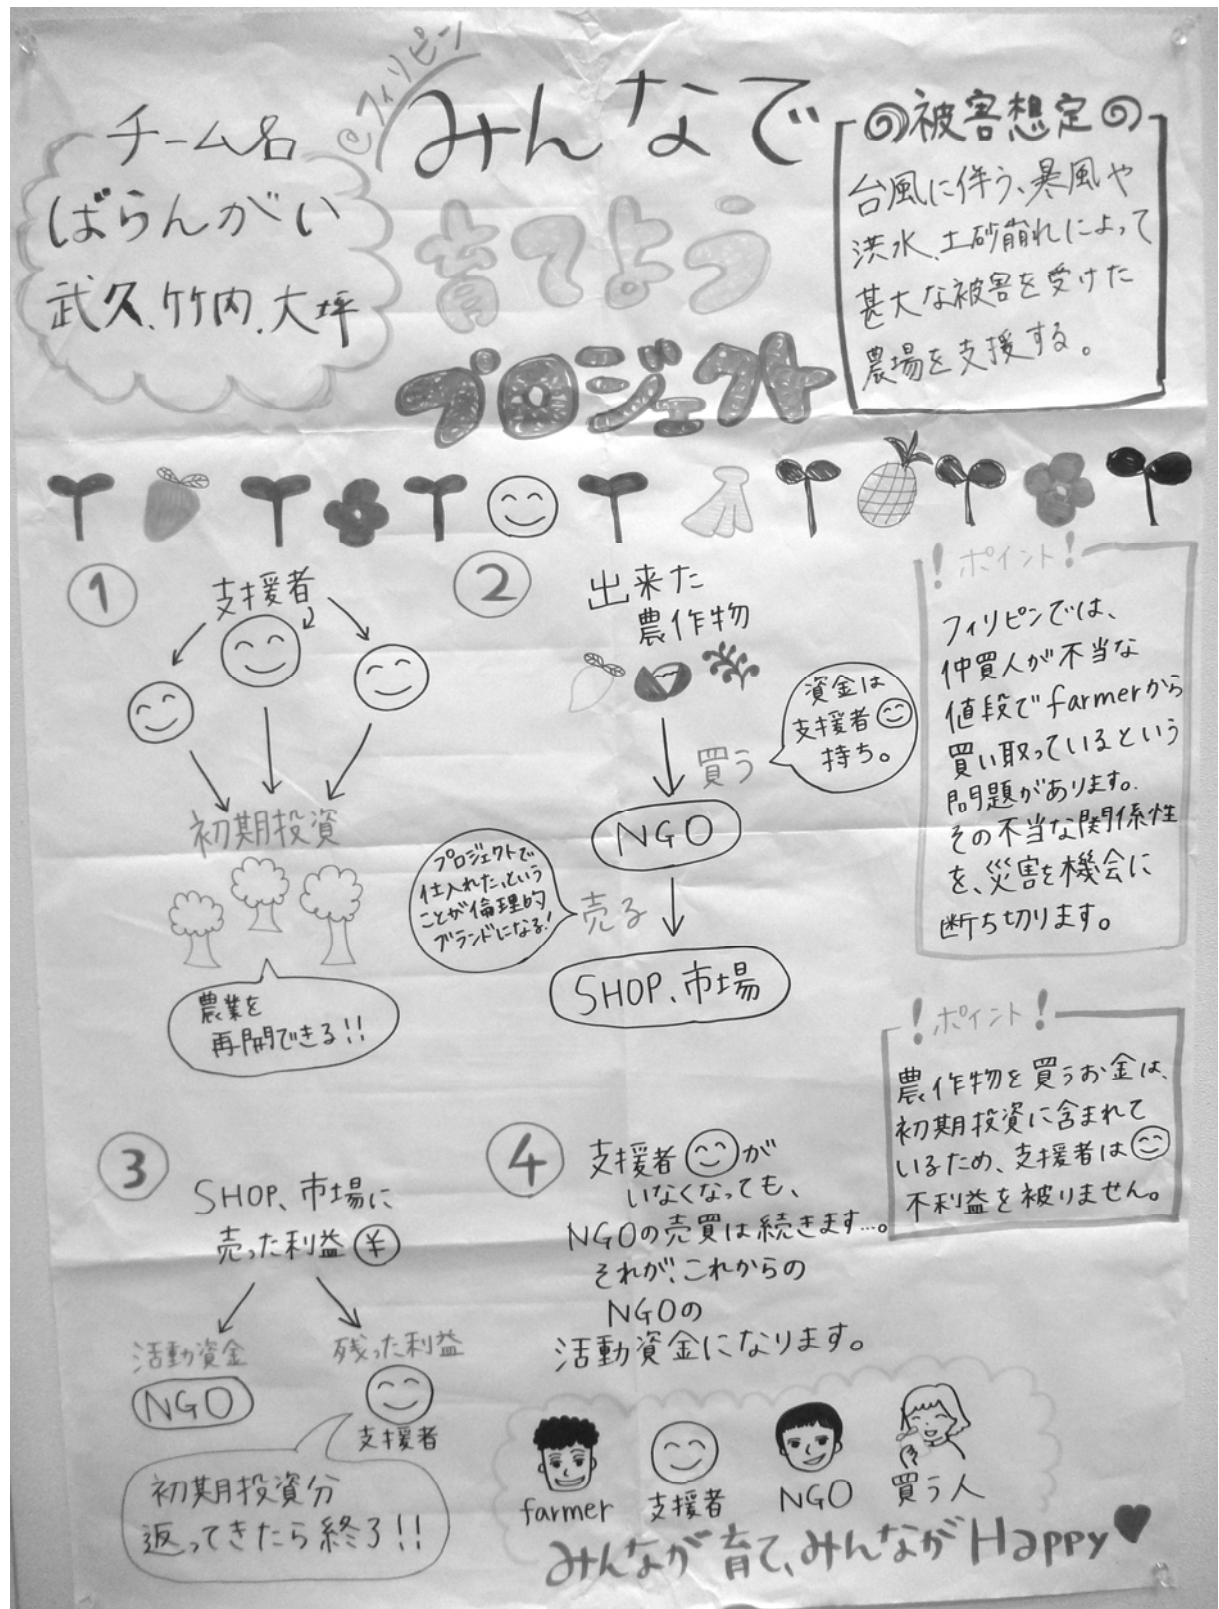 チーム名
ばらんがい
武久、竹内、大坪
@フィリピン
みんなで
育てよう
プロジェクト
被害想定
台風に伴う、暴風や
洪水、土砂崩れによって
甚大な被害を受けた
農場を支援する。
①
支援者
初期投資
農業を
再開できる!!
②
出来た
農作物
買う
資金は
支援者
持ち。
NGO
プロジェクトで
仕入れた、という
ことが倫理的
ブランドになる!
売る
SHOP、市場
!ポイント!
フィリピンでは、
仲買人が不当な
値段でfarmerから
買い取っているという
問題があります。
その不当な関係性
を、災害を機会に
断ち切ります。
!ポイント!
農作物を買うお金は、
初期投資に含まれて
いるため、支援者は
不利益を被りません。
③
SHOP、市場に
売った利益¥
活動資金
NGO
残った利益
支援者
初期投資分
返ってきたら終了!!
④
支援者が
いなくなっても、
NGOの売買は続きます…。
それが、これからの
NGOの
活動資金になります。
farmer
支援者
NGO
買う人
みんなが育て、みんながHappy♥